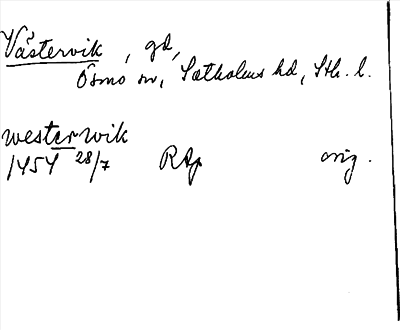 Västervik, gd,
Ösmo sn, Sotholms hd, Sth. l.
westerwik
1454 28/7 RAp orig.